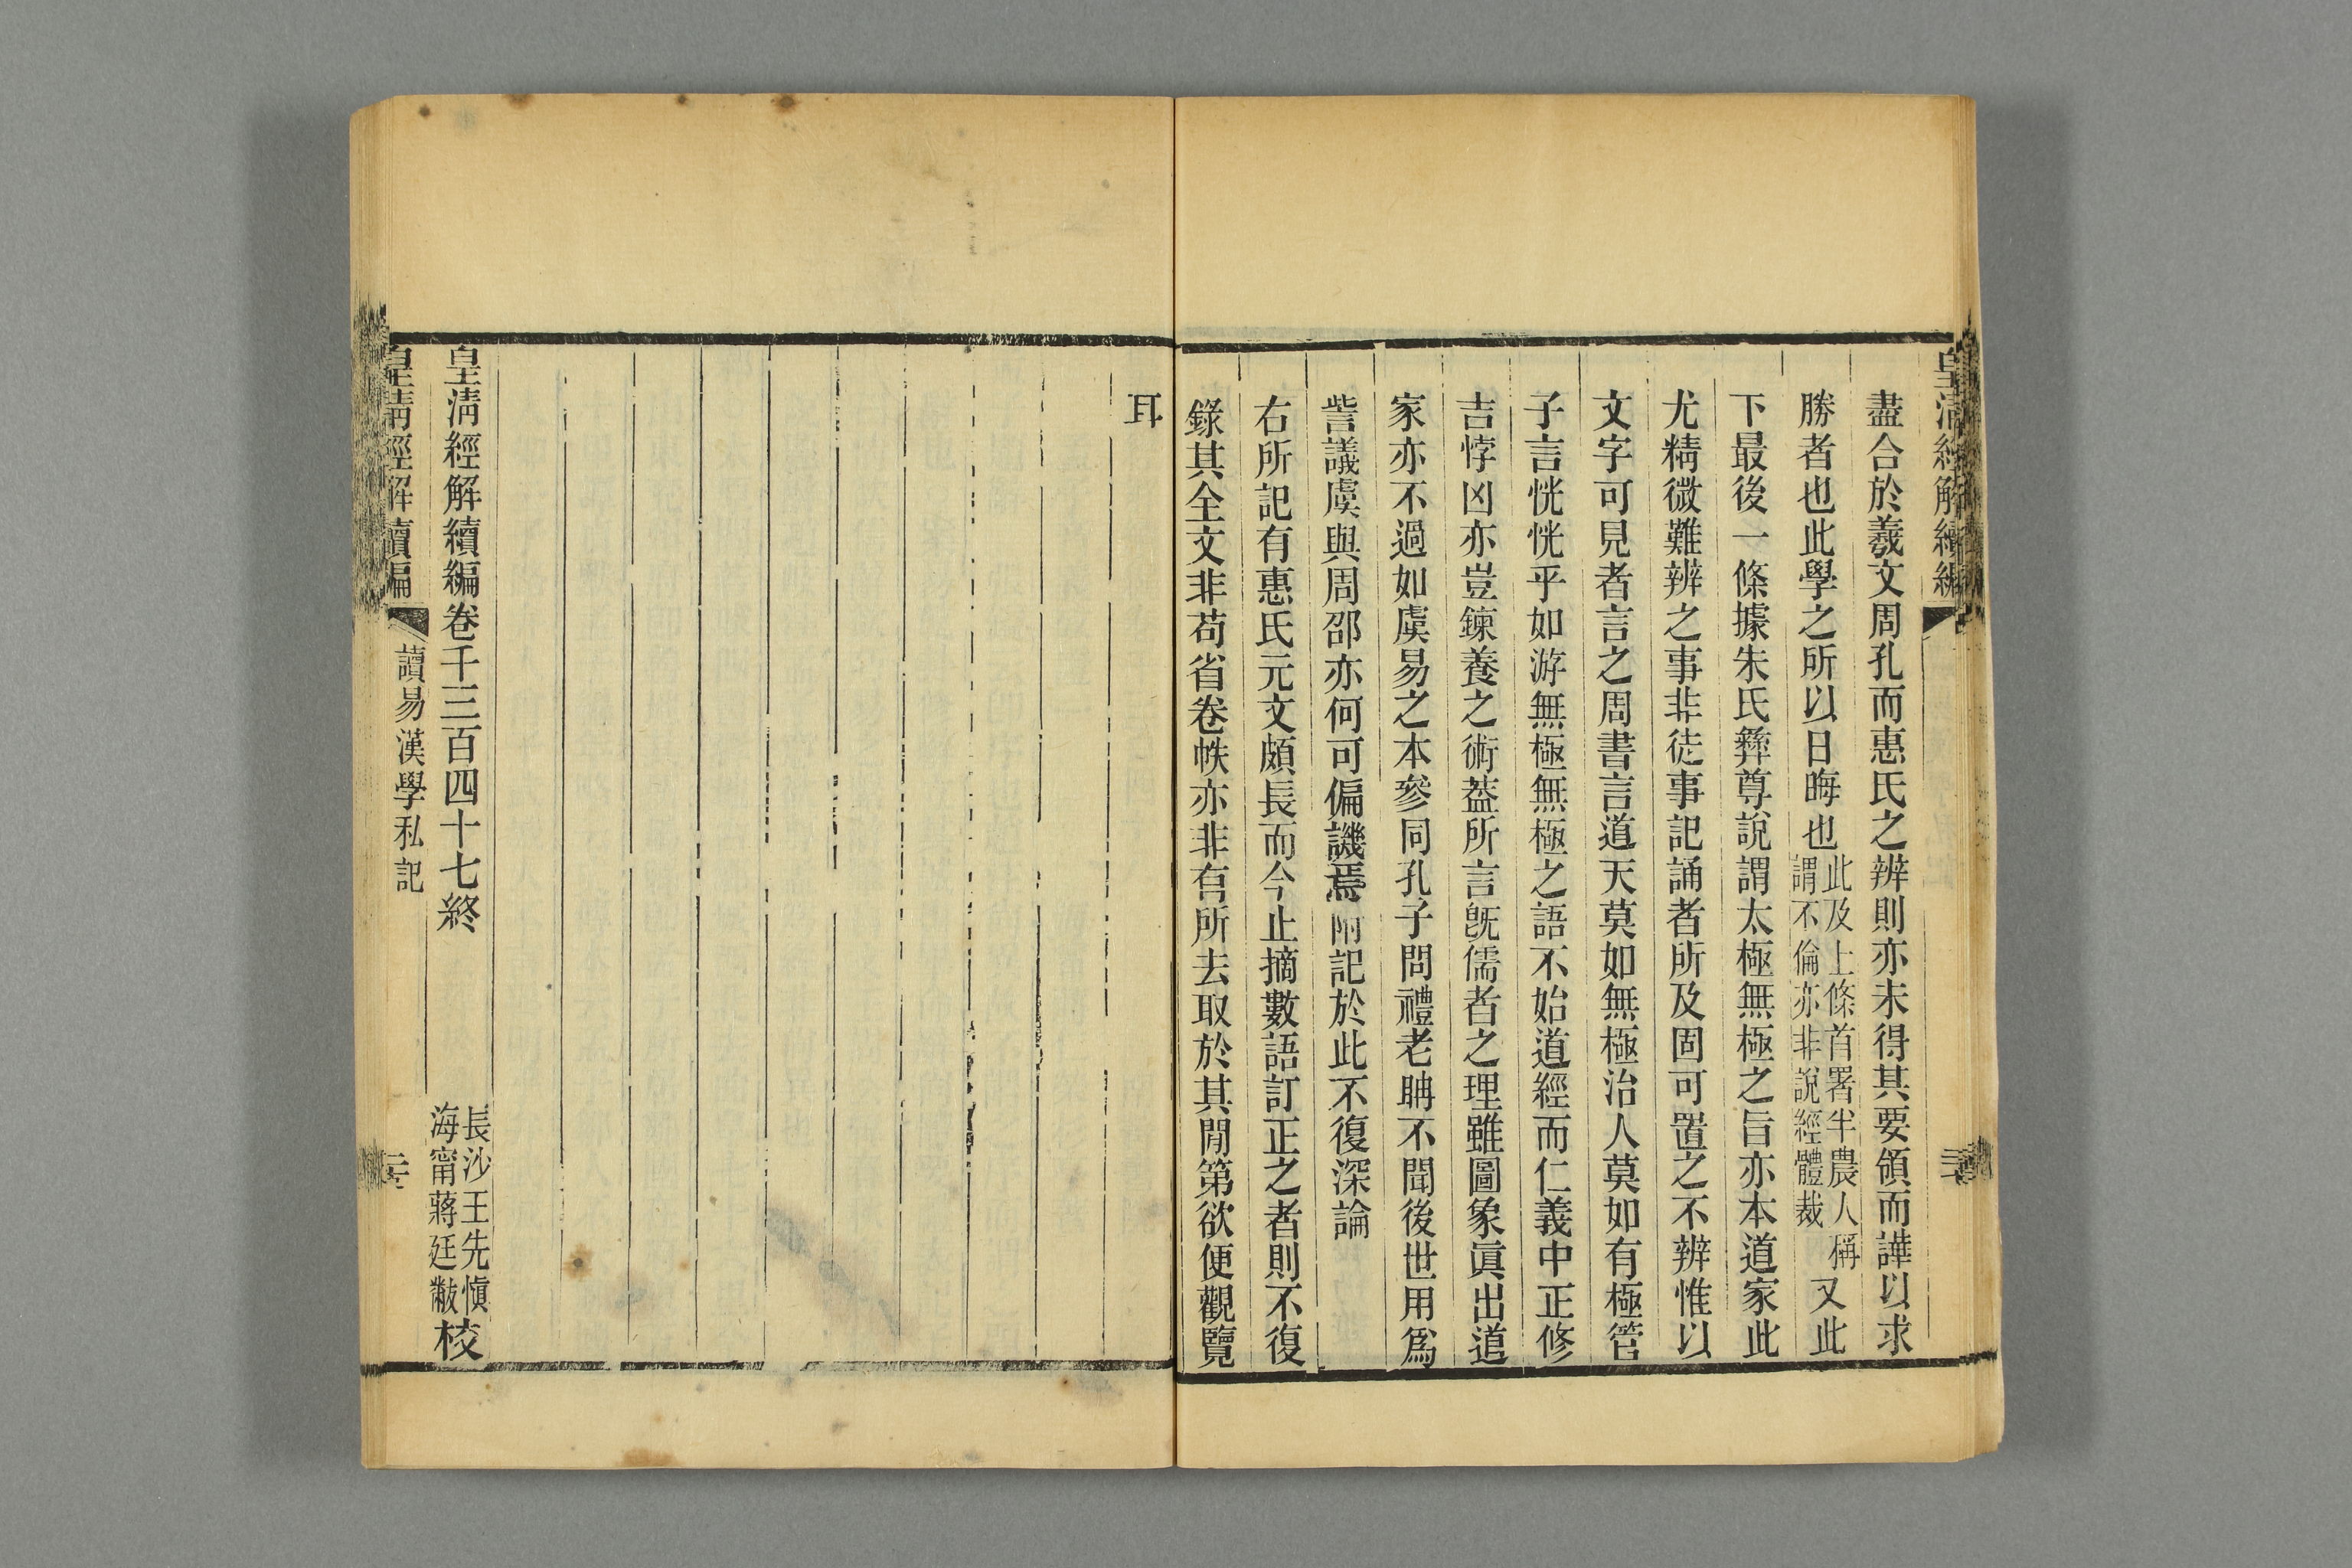 皇清經解續編
盡合於羲文周孔而惠氏之辨則亦未得其要領而譁以求
勝者也此學之所以日晦也此及上條首署半農人稱謂不倫亦非說經體裁又此
下最後一條據朱氏彝尊說謂太極無極之旨亦本道家此
尤精微難辨之事非徒事記誦者所及固可置之不辨惟以
文字可見者言之周書言道天莫如無極治人莫如有極管
子言恍恍乎如游無極無極之語不始道經而仁義中正修
吉悖凶亦豈鍊養之術葢所言旣儒者之理雖圖象眞出道
家亦不過如虞易之本參同孔子問禮老聃不聞後世用爲
訾議虞與周邵亦何可偏譏焉附記於此不復深論
右所記有惠氏元文頗長而今止摘數語訂正之者則不復
錄其全文非苟省卷帙亦非有所去取於其閒第欲便觀覽
耳
皇清經解續編卷千三百四十七終
長沙王先愼
海甯蔣廷黻
校
皇清經解續編
讀易漢學私記